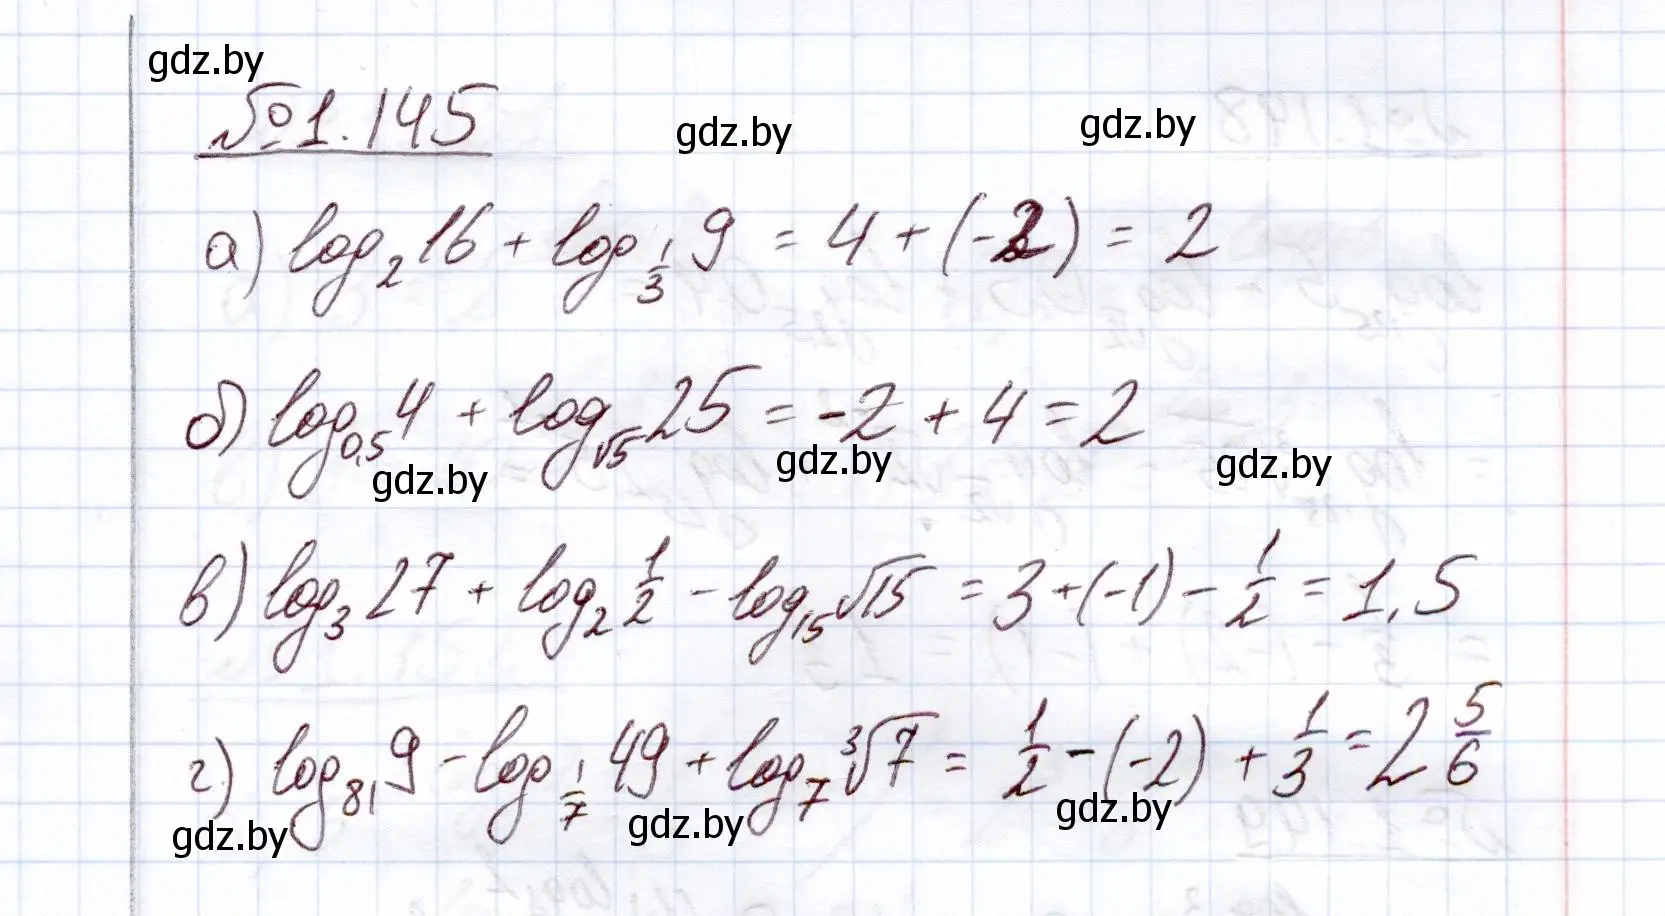 gdz.by
№1.145
gdz.by gdz.by
а) log₂16 + log_{1/3} 9 = 4 + (-2) = 2
б) log_{0,5} 4 + log_{√5} 25 = -2 + 4 = 2
gdz.by gdz.by gdz.by
в) log₃27 + log₂ 1/2 - log₁₅ √15 = 3 + (-1) - 1/2 = 1,5
г) log₈₁9 - log_{1/7} 49 + log₇ ∛7 = 1/2 - (-2) + 1/3 = 2 5/6
gdz.by gdz.by gdz.by